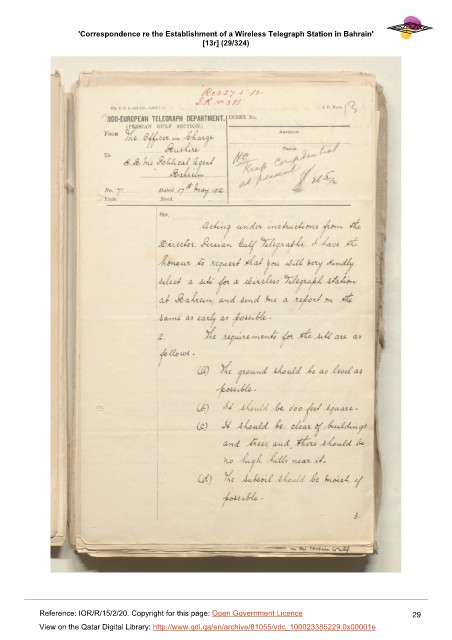 'Correspondence re the Establishment of a Wireless Telegraph Station in Bahrain'
[13r] (29/324)
Recd 27.5.12
I. R. No 381
INDO-EUROPEAN TELEGRAPH DEPARTMENT.
(PERSIAN GULF SECTION.)
INDEX No.
From The Officer in Charge
Bushire
To
H.B.M's Political Agent
Bahrein
No. 71 Dated 17th May 1912
Keep confidential
at present
26/5/12
Sir,
Acting under instructions from the
Director, Persian Gulf Telegraphs, I have the
honour to request that you will very kindly
select a site for a Wireless Telegraph station
at Bahrein, and send me a report on the
same as early as possible.
2. The requirements for the site are as
follows.
(a) The ground should be as level as
possible.
(b) It should be 600 feet square.
(c) It should be clear of buildings
and trees and there should be
no high hills near it.
(d) The subsoil should be moist if
possible.
3.
Reference: IOR/R/15/2/20. Copyright for this page: Open Government Licence
29
View on the Qatar Digital Library: http://www.qdl.qa/en/archive/81055/vdc_100023385229.0x00001e